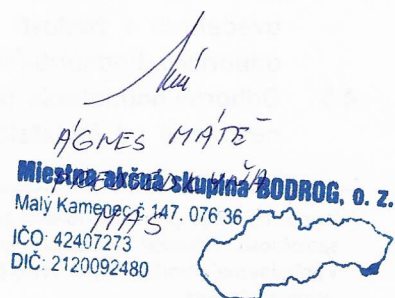 ÁGNES MÁTÉ
Miestna akčná skupina BODROG, o. z.
Malý Kamenec č. 147. 076 36
MAS
IČO: 42407273
DIČ: 2120092480